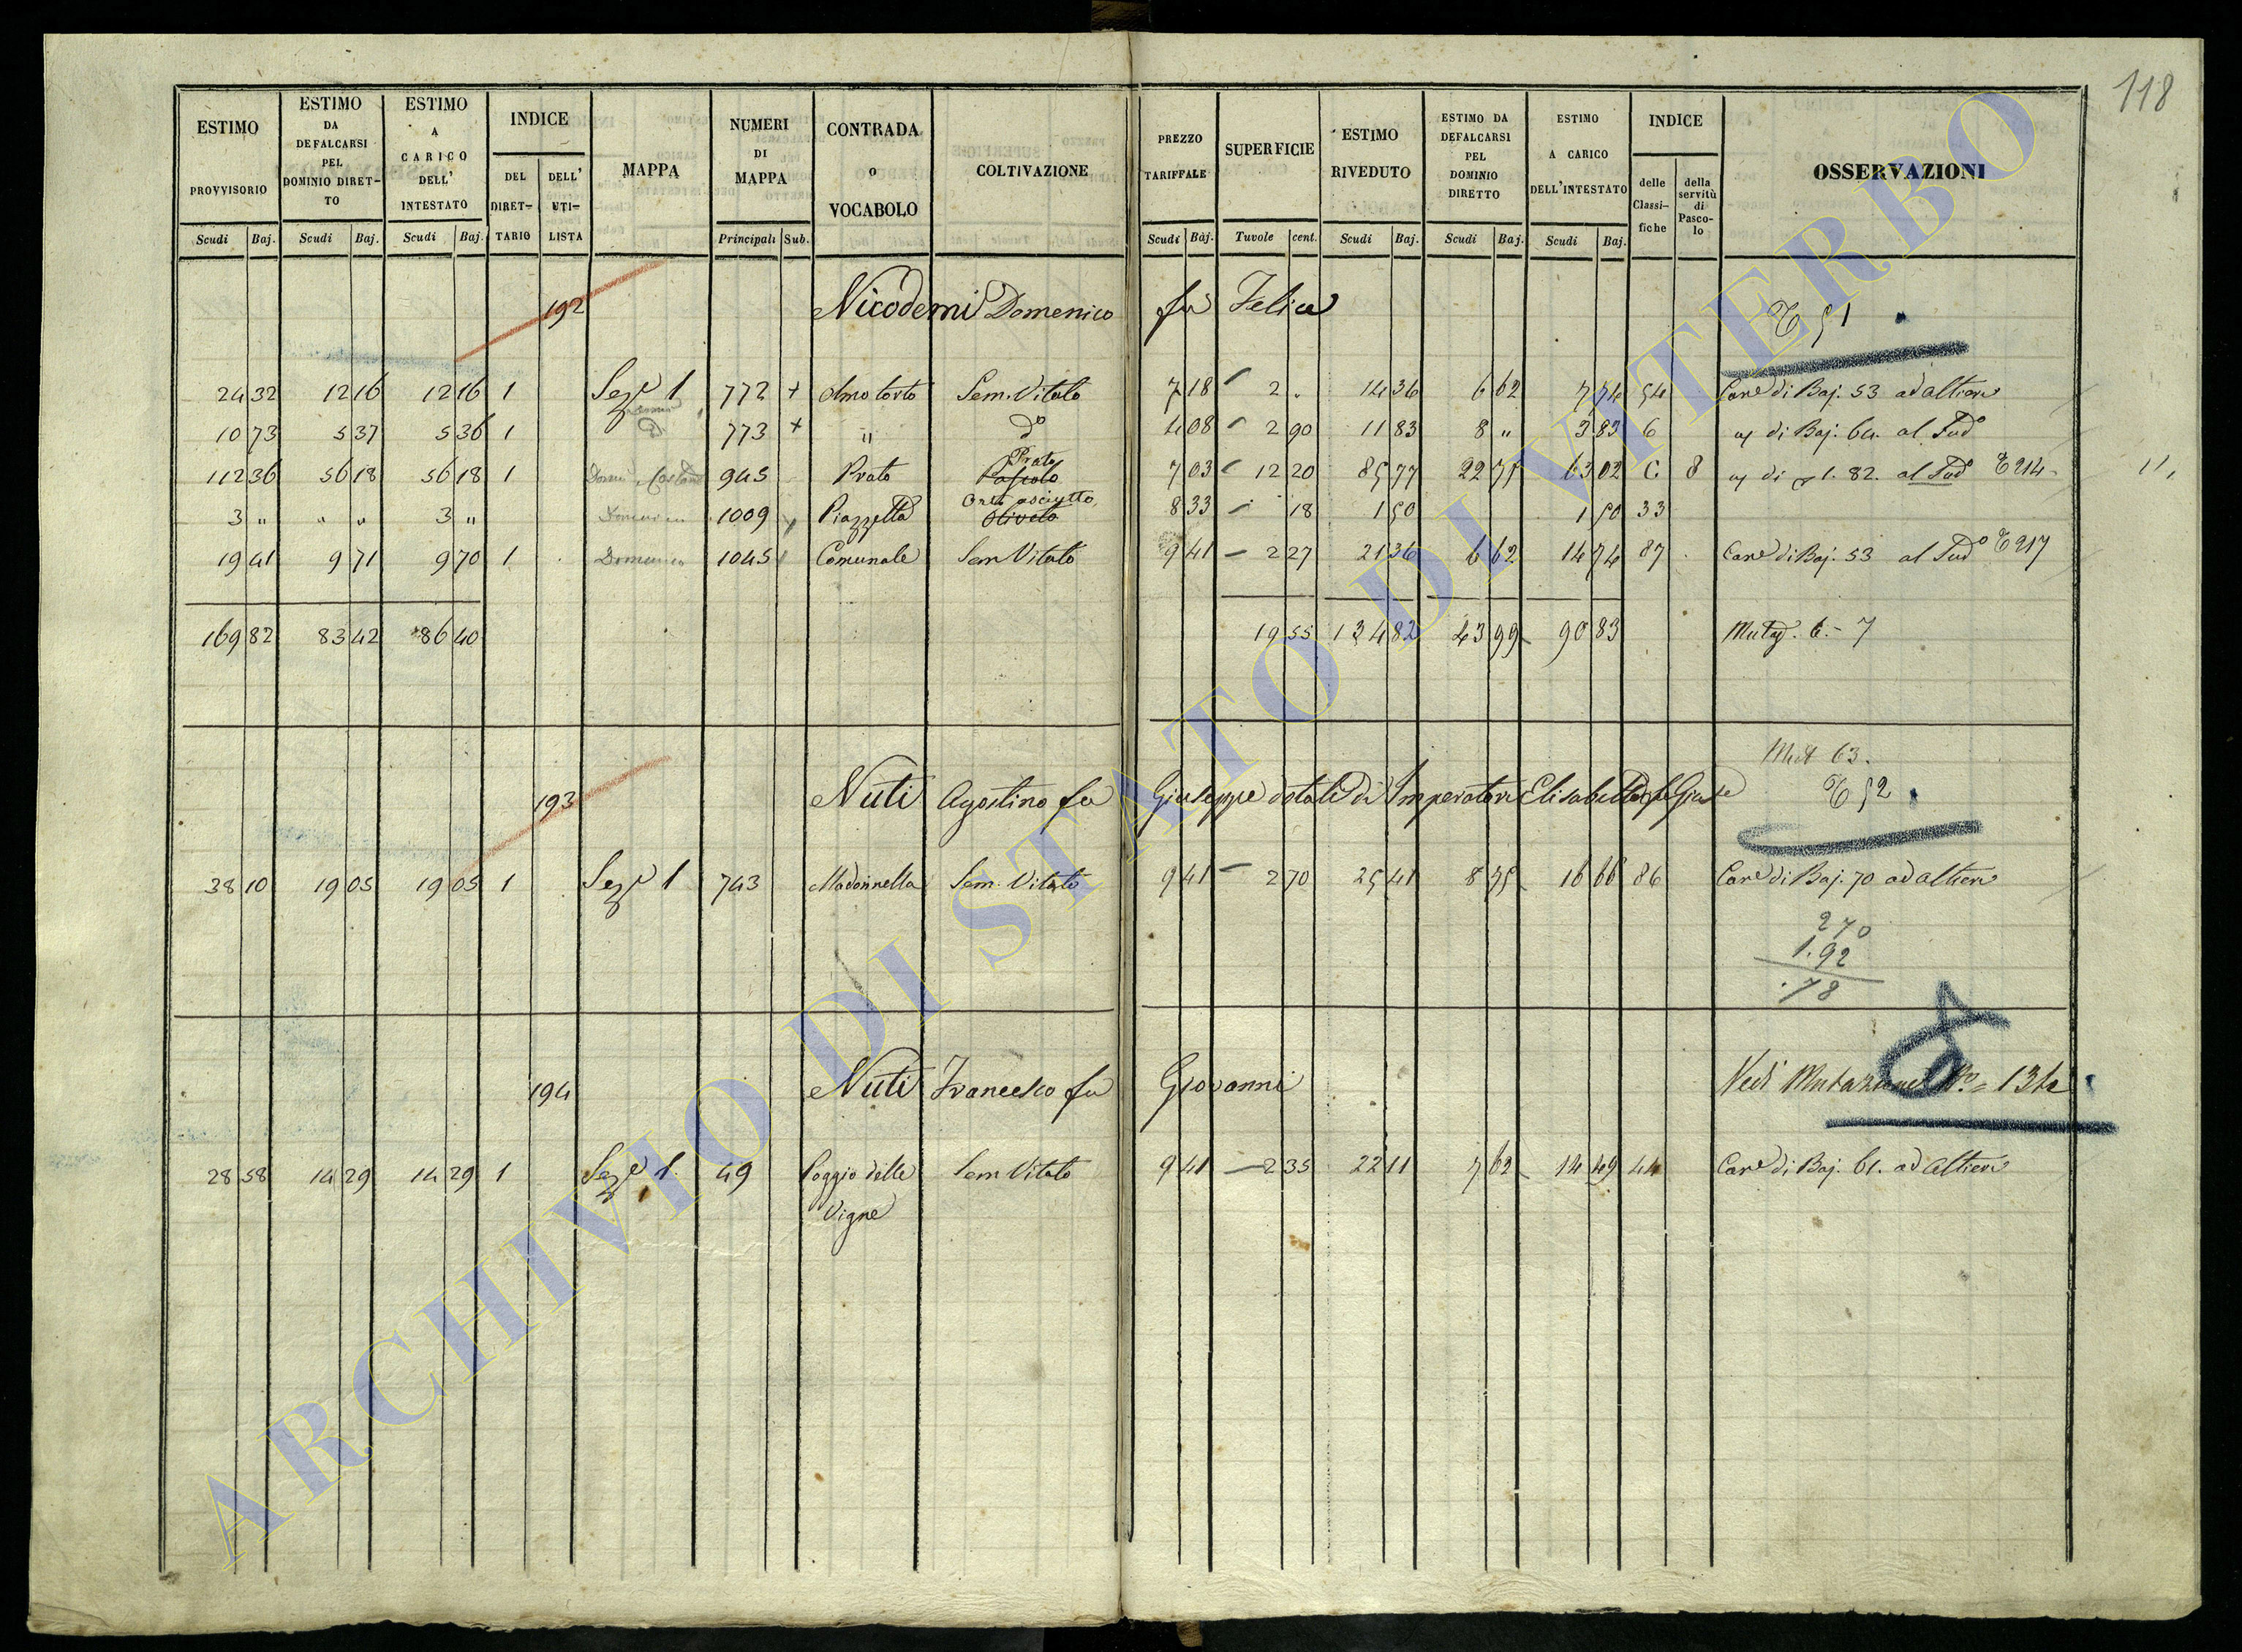 118
ESTIMO PROVVISORIO Scudi Baj.
ESTIMO DA DEFALCARSI PEL DOMINIO DIRET-TO Scudi Baj.
ESTIMO A CARICO DELL' INTESTATO Scudi Baj.
INDICE DEL DIRET-TARIO DELL' UTI-LISTA
MAPPA
NUMERI DI MAPPA Principali Sub.
CONTRADA o VOCABOLO
COLTIVAZIONE
PREZZO TARIFFALE Scudi Baj.
SUPERFICIE Tavole cent.
ESTIMO RIVEDUTO Scudi Baj.
ESTIMO DA DEFALCARSI PEL DOMINIO DIRETTO Scudi Baj.
ESTIMO A CARICO DELL'INTESTATO Scudi Baj.
INDICE delle Classi-fiche della servitù di Pasco-lo
OSSERVAZIONI
192 Nicodemi Domenico fu Felice 51
24 32 12 16 12 16 1 Sez.e 1 772 + Olmo torto Sem. Vitato 7 18 2 . 14 36 6 62 7 74 54 Can.e di Baj. 53 ad Altieri
10 73 5 37 5 36 1 773 + " d.o 4 08 2 90 11 83 8 " 3 83 6 di Baj. 64. al Sud.o
112 36 56 18 56 18 1 945 Prato Prato Pascolo 7 03 12 20 85 77 22 75 63 02 6 8 di 1. 82. al Sud.o 214
3 " " " 3 " 1009 Piazzetta Orto asciutto Oliveto 8 33 18 1 50 1 50 33
19 41 9 71 9 70 1 Domenico 1045 Comunale Sem Vitato 9 41 2 27 21 36 6 62 14 74 87 Can.e di Baj. 53 al Sud.o 217
169 82 83 42 86 40 19 55 134 82 43 99 90 83 Mutaz. 6.- 7
Mut 63.
193 Nuti Agostino fu Giuseppe dotale di Imperatori Elisabetta 52
38 10 19 05 19 05 1 Sez.e 1 743 Madonnella Sem. Vitato 9 41 2 70 25 41 8 75 16 66 86 Can.e di Baj. 70 ad Altieri
270
1.92
.78
194 Nuti Francesco fu Giovanni Vedi Mutazione N.o 134
28 58 14 29 14 29 1 Sez.e 1. 49 Poggio delle Vigne Sem Vitato 9 41 2 35 22 11 7 62 14 49 44 Can.e di Baj. 61. ad Altieri
ARCHIVIO DI STATO DI VITERBO